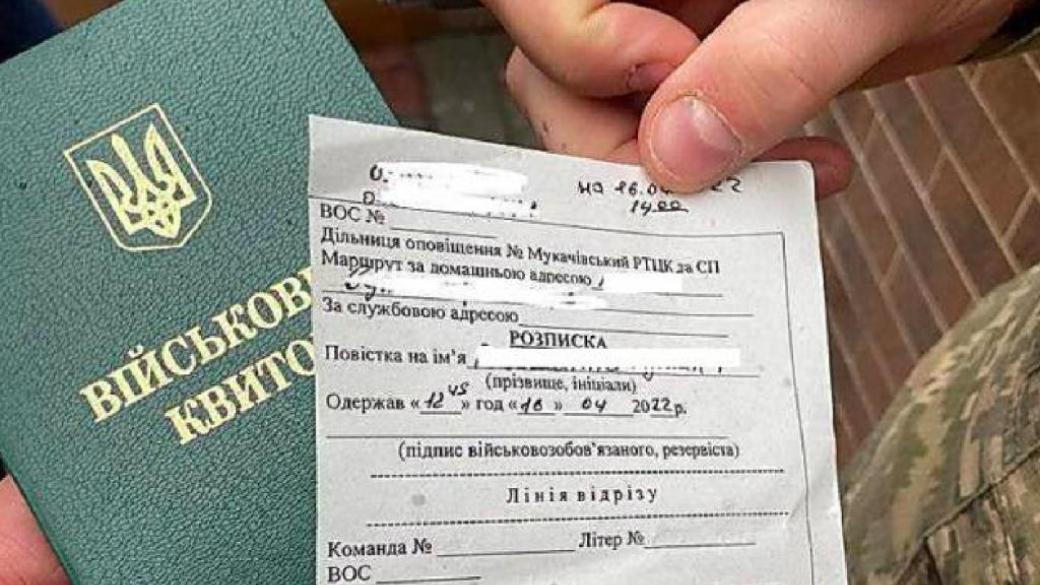 ВІЙСЬКОВ
КВИТО
14.00
ВОС №
Дільниця оповіщення № Мукачівський РТЦК та СП
Маршрут за домашньою адресою
За службовою адресою
РОЗПИСКА
Повістка на ім’я
(прізвище, ініціали)
Одержав «12 45» год «16» 04 2022 р.
(підпис військовозобов’язаного, резервіста)
Лінія відрізу
Команда № Літер №
ВОС